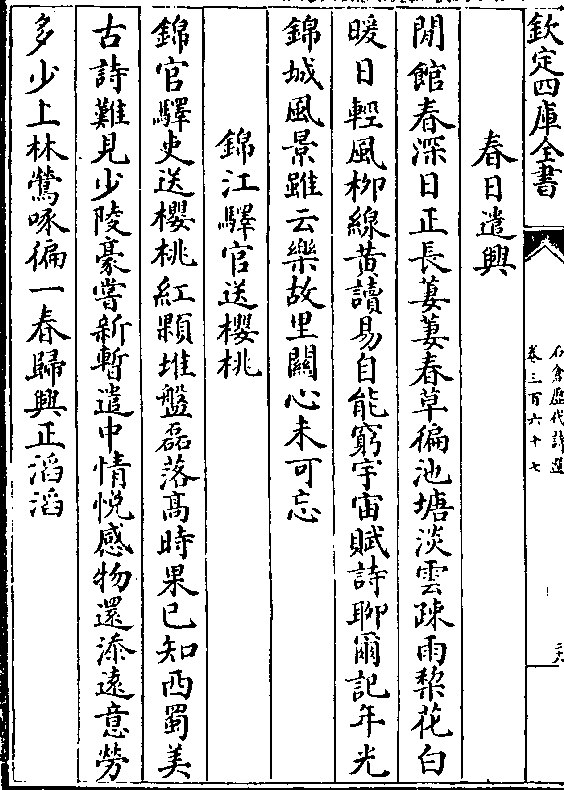 欽定四庫全書
石倉歷代詩選
卷三百六十七
春日遣興
閒館春深日正長萋萋春草徧池塘淡雲疎雨棃花白
暖日輕風柳線黄讀易自能窮宇宙賦詩聊爾記年光
錦城風景雖云樂故里關心未可忘
錦江驛官送櫻桃
錦官驛吏送櫻桃紅顆堆盤磊落髙時果已知西蜀美
古詩難見少陵豪嘗新暫遣中情悦感物還添逺意勞
多少上林鶯啄徧一春歸興正滔滔